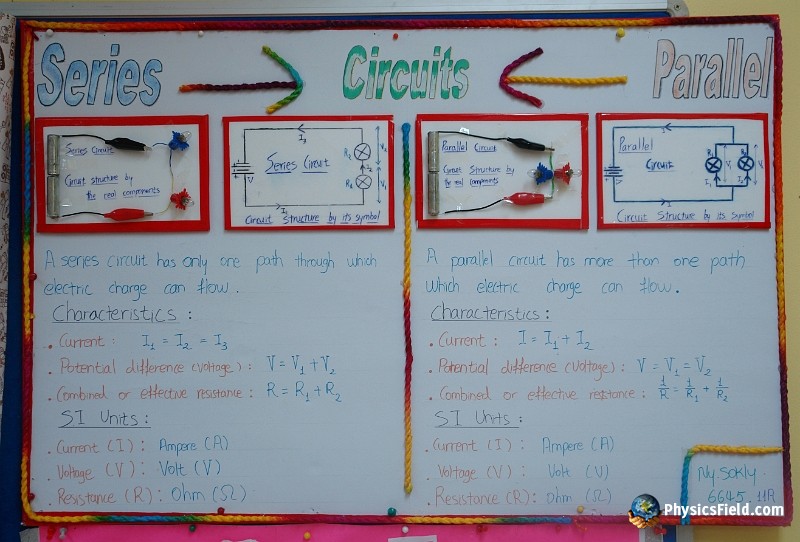 Series
Circuits
Parallel
Series Circuit
Circuit structure by
the real components
I3
R2
V2
V
Series Circuit
R1
V1
I1
Circuit Structure by its symbol
Parallel Circuit
Circuit structure by
the real components
Parallel
Circuit
V
I
Circuit Structure by its Symbol
A series circuit has only one path through which
electric charge can flow.
Characteristics :
• Current : I1 = I2 = I3
• Potential difference (voltage) : V = V1 + V2
• Combined or effective resistance : R = R1 + R2
SI Units :
• Current (I) : Ampere (A)
• Voltage (V) : Volt (V)
• Resistance (R) : Ohm (Ω)
A parallel circuit has more than one path
which electric charge can flow.
Characteristics :
• Current : I = I1 + I2
• Potential difference (voltage) : V = V1 = V2
• Combined or effective resistance : 1/R = 1/R1 + 1/R2
SI Units :
• Current (I) : Ampere (A)
• Voltage (V) : Volt (V)
• Resistance (R) : Ohm (Ω)
Ny Sokly
6645 11A
PhysicsField.com